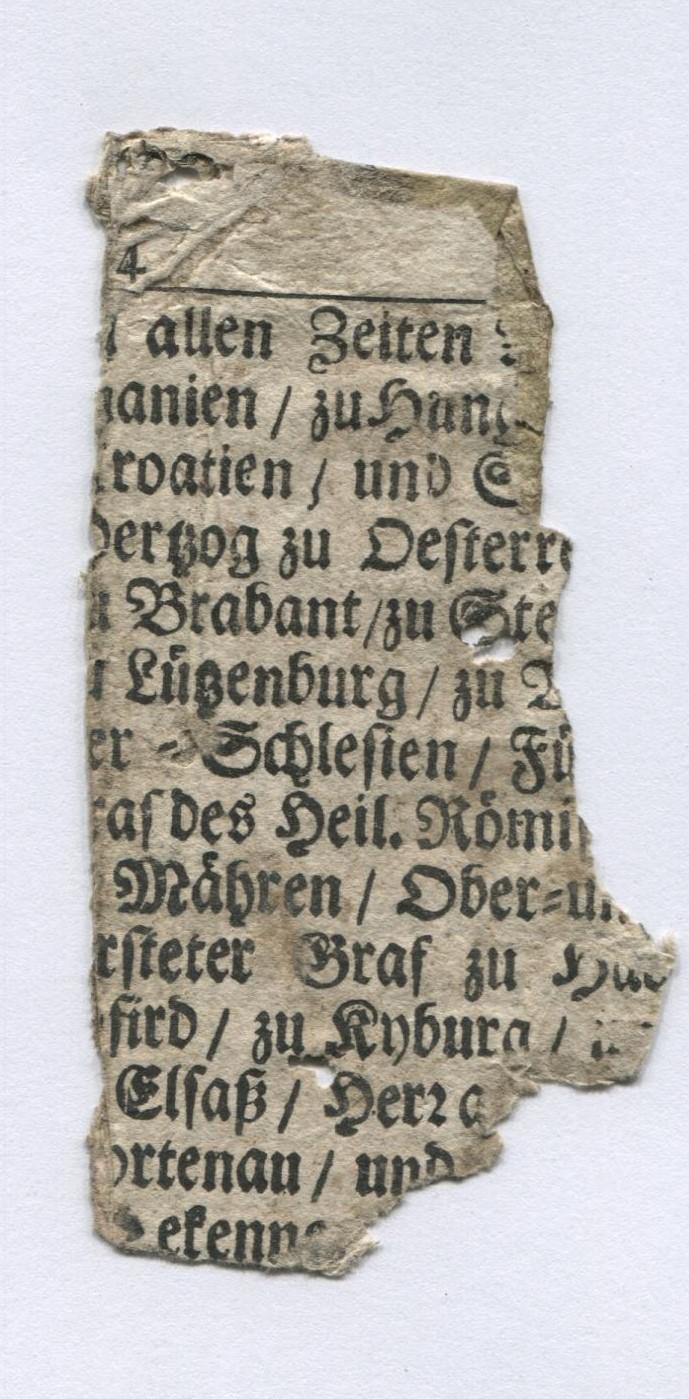 4
allen Zeiten
anien / zu Hung
roatien / und
ertzog zu Oesterre
Brabant / zu Ste
Lützenburg / zu
er - Schlesien / Fü
af des Heil. Römi
Mähren / Ober-un
rsteter Graf zu Hab
fird / zu Kyburg /
Elsaß / Herr a
ortenau / und
ekenne